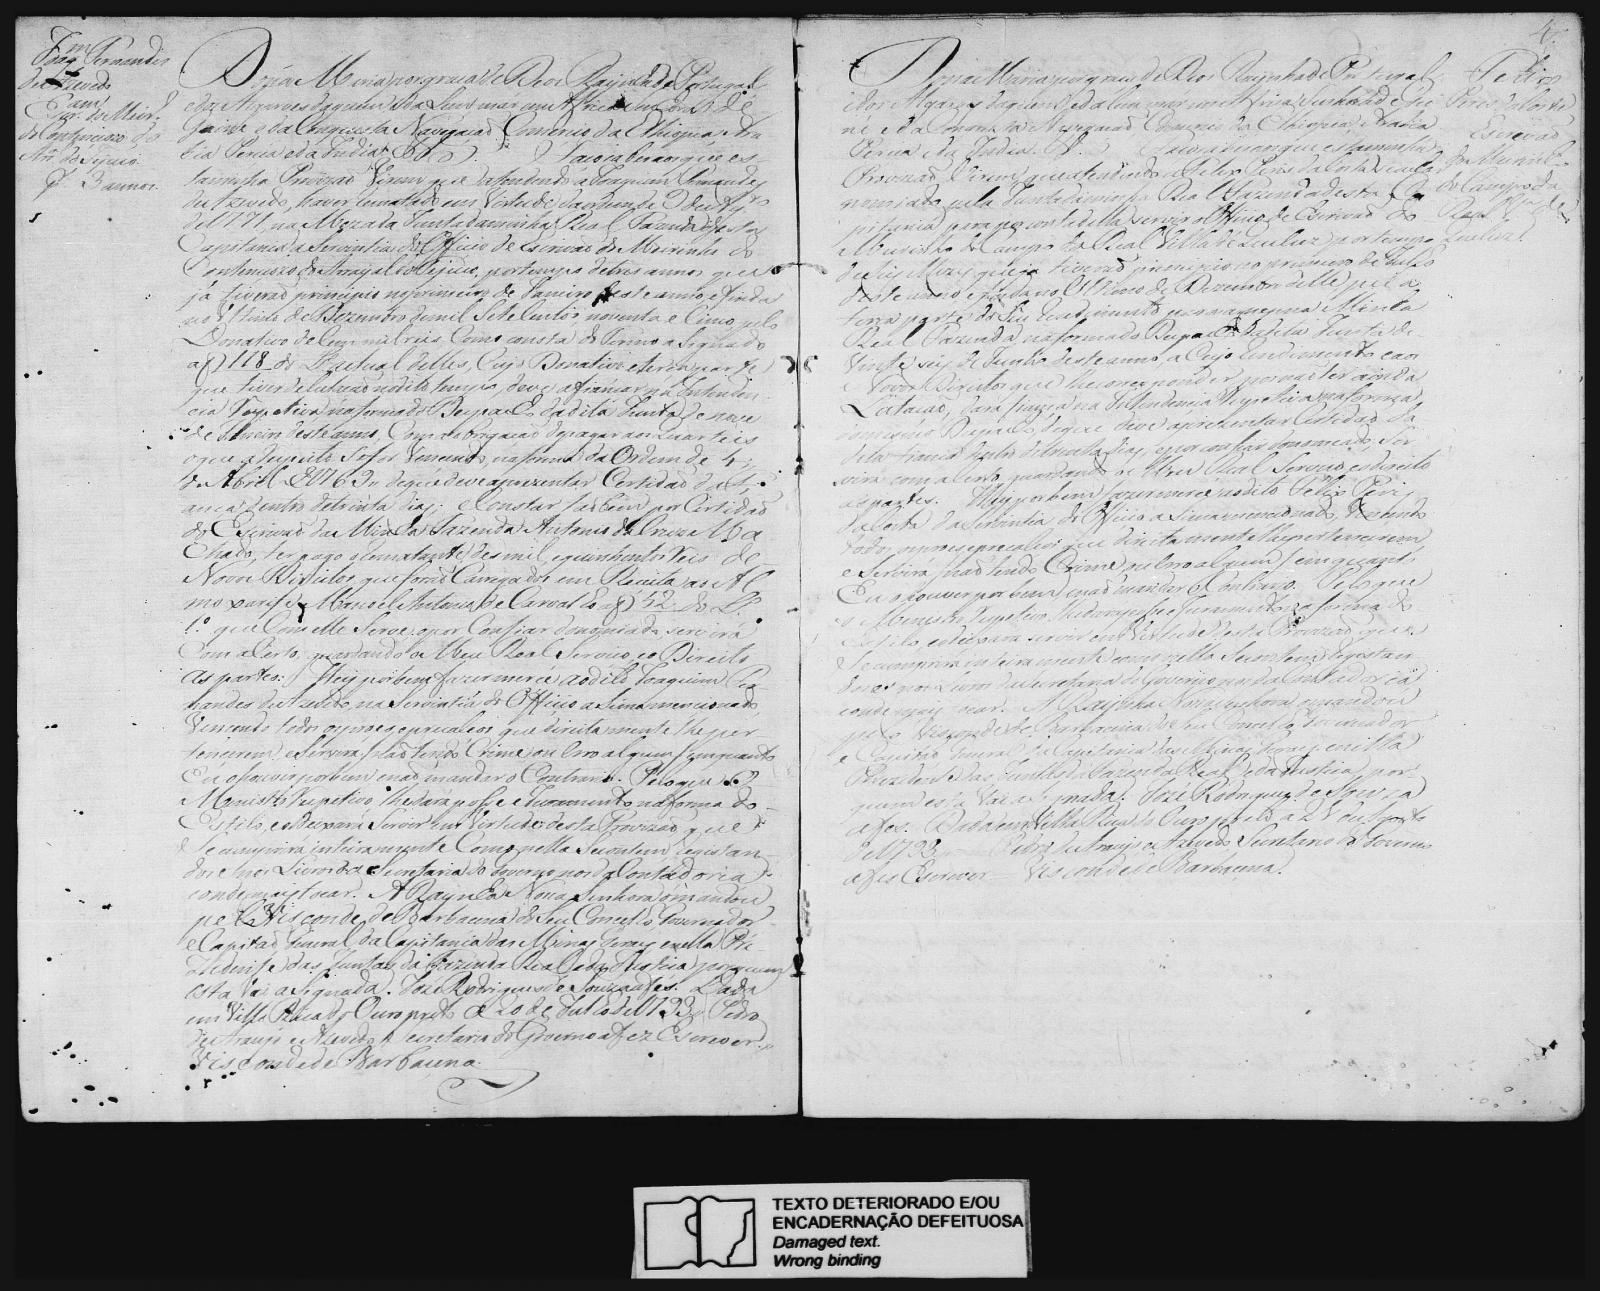 Joaqm Fernandes
de Azevedo
Escram
do Meirº
do Contencioso do
Arr. do Tejuco
Pr 3 annos.
Dona Maria por graça de Deos Raynha de Portugal
e dos Algarves daquem e da Lem mar em Africa Senhora de
Guiné e da Conquista Navegação Comercio da Ethiopia Ara
bia Percia e da India &ª. Faço saber aos que es
ta minha Provizaõ virem que atendendo a Joaquim Fernandes
de Azevedo, haver rematado em virtude da ordem de
de 1771 na Meza da Junta da minha Real Fazenda desta
Capitania a Serventia do Officio de Escrivaõ do Meirinho do
Contencioso do Arrayal do Tejuco, por tempo de tres annos que
já tiveraõ principio no primeiro de Janeiro deste anno e finda
no ultimo de Dezembro de mil Sete Centos noventa e Cinco pelo
Donativo de Cem mil reis Como consta do Termo asignado
a f 118 do Lº actual delles, Cujo Donativo e terça parte
que tiver de lutaçaõ no dito tempo, deve afiançar na Intenden
cia Respectiva na forma do Despacho da dita Junta de onze
de Janeiro deste anno, Com obrigaçaõ de pagar aos quarteis
o que a respeito se for Vencendo, na forma da Ordem de 4
de Abril de 1763 de que deve aprezentar Certidaõ da fi
ança dentro de trinta dias; e Constar tambem por Certidaõ
do Escrivaõ da Minha Fazenda Antonio da Cruz Ma
chado, ter pago o Rematante des mil, e quinhentos reis de
Novos Direitos, que foraõ Carregados em Receita ao Al
moxarife Manoel Antonio de Carvalho a f 52 do Lº
1º que Com elle Serve, e por Confiar do nomiado servirá
Com acerto, guardando o Meu Real Serviço, e o Direito
as partes: Hey por bem fazer merce ao dito Joaquim Fer
nandes de Azevedo, na Serventia do Officio a Sima mencionado,
Vencendo todos os proes e precalços que direitamente lhe per
tencerem, e Servirá (naõ tendo Crime ou Erro algum) em quanto
Eu o houver por bem e naõ mandar o Contrario. Pelo que o
Ministro Respectivo, lhe dará posse e Juramento na forma do
Estilo, e o Deixará Servir em Virtude desta Provizaõ, que
se cumprirá inteiramente Como nella Se contem registan
dose nos Livros da Secretaria do Governo, nos da Contadoria
e onde mais tocar. A Raynha Nossa Senhora o mandou
pelo Visconde de Barbacena do Seu Concelho Governador
e Capitaõ General da Capitania das Minas Geraes e nella Pre
zidente das Juntas da Fazenda Real, e da Justiça por quem
esta Vai a Signada. Joze Rodrigues de Souza a fes. Dada
em Villa Rica do Ouro preto a 20 de Julho de 1793. Pedro
de Araujo e Azevedo Secretario do Governo a fez Escrever.
Visconde de Barbacena.
4
Felix
Peres da Costa
Escrivaõ
do Meirinho
do Campo da
Real Vª de
Queluz.
Dona Maria por graça de Deos Raynha de Portugal
e dos Algarves daquem e da Lem mar em Africa Senhora de Gui
né e da Conquista Navegaçaõ Comercio da Ethiopia Arabia
Percia e da India &ª. Faço saber aos que esta minha
Provizaõ Virem, que atendendo a Felix Peres da Costa se achar
nomiado pela Junta da minha Real Fazenda desta Ca
pitania para por conta della servir o Officio de Escrivaõ do
Meirinho do Campo da Real Villa de Queluz por tempo
de Seis Mezes que ja tiveraõ principio no primeiro de Julho
deste anno, e findaõ no Ultimo de Dezembro delle pela
terça parte do Seu Rendimento para a minha
Real Fazenda na forma do Despacho da dita Junta de
Vinte seis de Junho deste anno, a Cujo Rendimento caso
e Novos Direitos que lhe corresponder, por naõ ter ainda
Lotaçaõ, dará fiança na Intendencia respectiva na forma
do mesmo Despacho, de que deve aprezentar Certidaõ da
dita fiança dentro de trinta dias, e por confiar do nomeado, ser
virá com acerto, guardando o Meu Real Serviço, e o direito
as partes. Hey por bem fazer merce ao dito Felix Peres
da Costa da Serventia do Officio a Sima mencionado, Vencendo
todos os proes e precalços que direitamente lhe pertencerem,
e Servirá (naõ tendo Crime ou Erro algum) em quanto
Eu o houver por bem, e naõ mandar o Contrario. Pelo que
o Ministro Respectivo lhe dará posse e Juramento na forma do
Estilo, e o deixará servir em Virtude desta Provizaõ, que
Se cumprirá inteiramente como nella Se contem, registan
dose nos Livros da Secretaria do Governo nos da Contadoria
e onde mais tocar. A Raynha Nossa Senhora o mandou
pelo Visconde de Barbacena do Seu Concelho Governador
e Capitaõ General da Capitania das Minas Geraes e nella
Prezidente das Juntas da Fazenda Real e da Justiça por
quem esta Vai a Signada. Joze Rodrigues de Souza
a fes. Dada em Villa Rica do Ouro preto a 21 de Agosto
de 1793. Pedro de Araujo e Azevedo Secretario do Governo
a fes Escrever Visconde de Barbacena.
TEXTO DETERIORADO E/OU
ENCADERNAÇÃO DEFEITUOSA
Damaged text.
Wrong binding